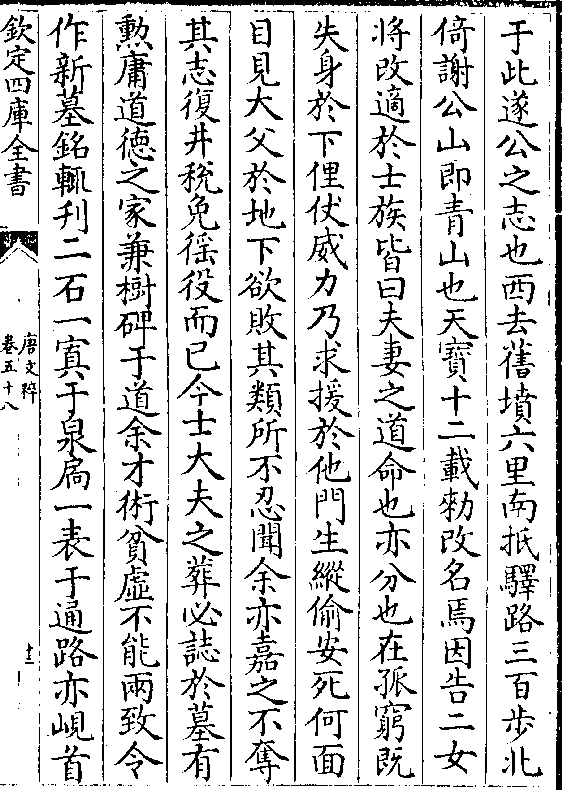 于此遂公之志也西去舊墳六里南抵驛路三百步北
倚謝公山即青山也天寶十二載勑改名焉因告二女
將改適於士族皆曰夫妻之道命也亦分也在孤窮既
失身於下俚仗威力乃求援於他門生縱偷安死何面
目見大父於地下欲敗其類所不忍聞余亦嘉之不奪
其志復井稅免徭役而已今士大夫之葬必誌於墓有
勲庸道徳之家兼樹碑于道余才術貧虛不能兩致今
作新墓銘輒刋二石一寘于泉扃一表于通路亦峴首
欽定四庫全書
唐文粹
卷五十八
十三